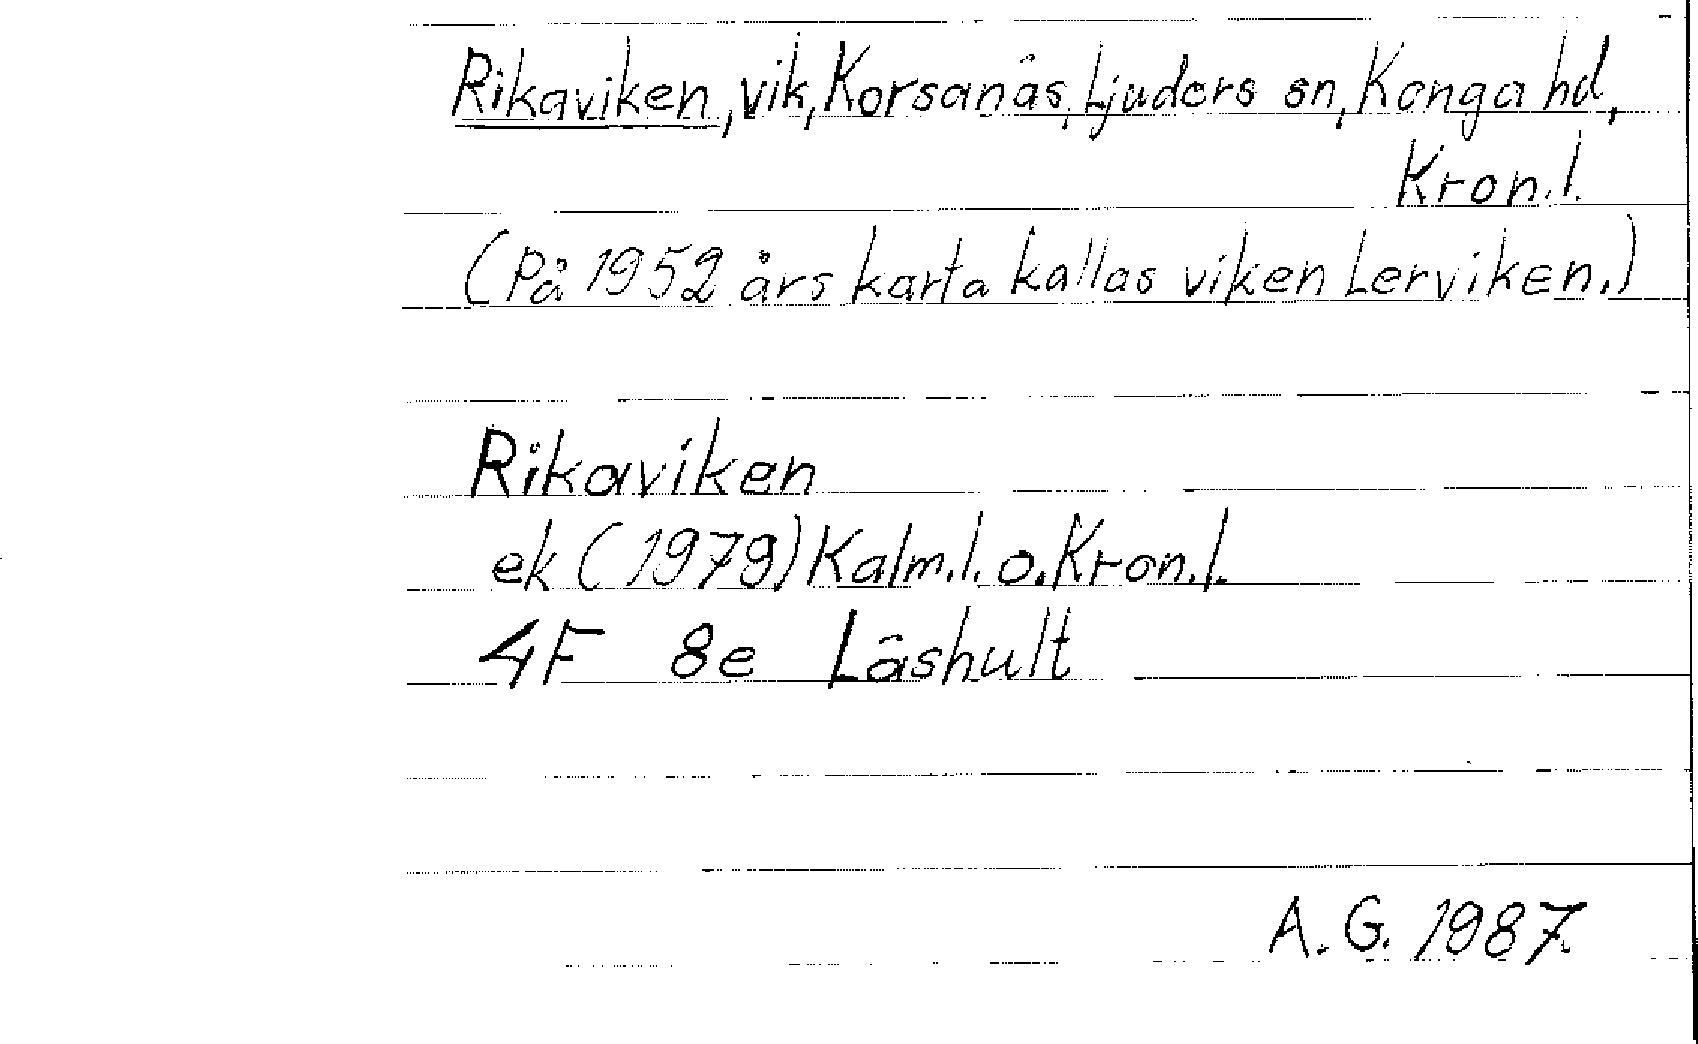 Rikaviken, vik, Korsanäs, Ljuders sn, Konga hd,
Kron.l.
(På 1952 års karta kallas viken Lerviken.)
Rikaviken
ek (1979) Kalm.l. o. Kron.l.
4F 8e Låshult
A.G. 1987.